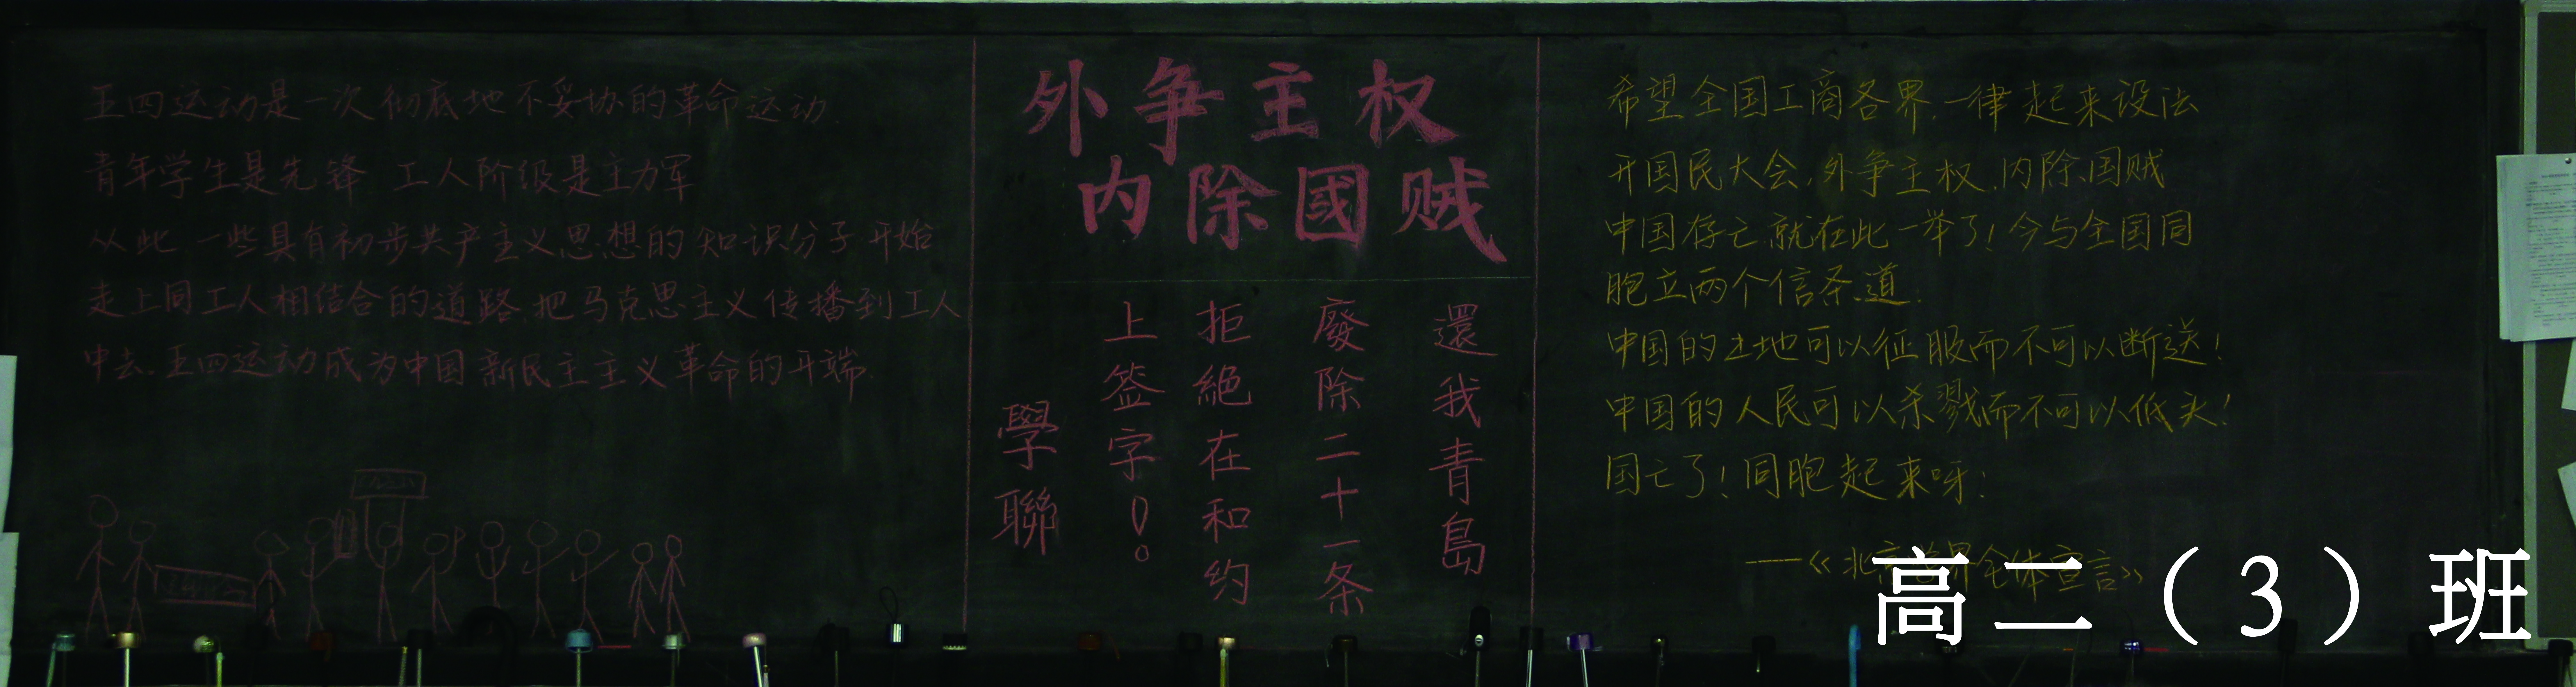 五四运动是一次彻底地不妥协的革命运动.
青年学生是先锋 工人阶级是主力军
从此,一些具有初步共产主义思想的知识分子开始
走上同工人相结合的道路,把马克思主义传播到工人
中去.五四运动成为中国新民主主义革命的开端.
外争主权
内除國贼
還我青島
廢除二十一条
拒絕在和约
上签字!
學聯
希望全国工商各界,一律起来设法
开国民大会,外争主权,内除国贼
中国存亡,就在此一举了!今与全国同
胞立两个信条道:
中国的土地可以征服而不可以断送!
中国的人民可以杀戮而不可以低头!
国亡了!同胞起来呀!
——《北京学界全体宣言》
高二（3）班